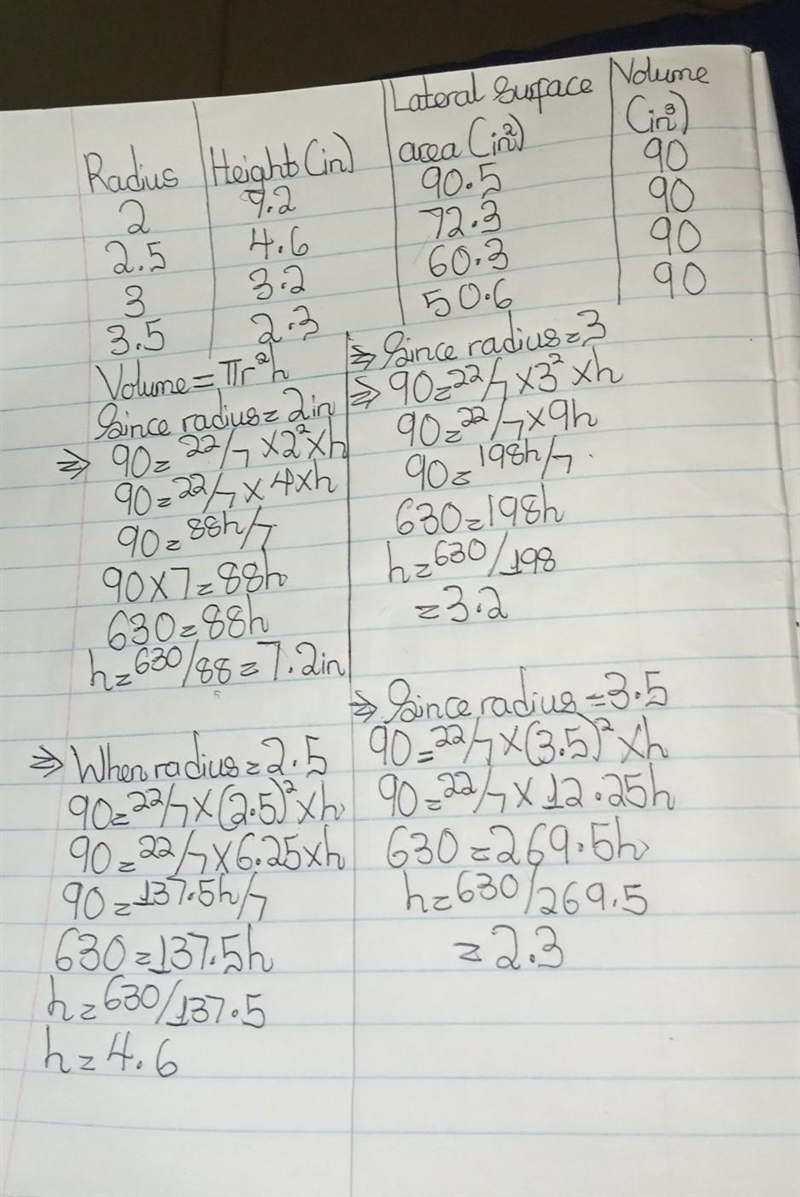 Radius | Height (in) | Lateral Surface area (in²) | Volume (in³)
2 | 7.2 | 90.5 | 90
2.5 | 4.6 | 72.3 | 90
3 | 3.2 | 60.3 | 90
3.5 | 2.3 | 50.6 | 90
Volume = πr²h
Since radius = 2in
⇒ 90 = 22/7 × 2² × h
90 = 22/7 × 4 × h
90 = 88h/7
90 × 7 = 88h
630 = 88h
h = 630/88 = 7.2in
⇒ When radius = 2.5
90 = 22/7 × (2.5)² × h
90 = 22/7 × 6.25 × h
90 = 137.5h/7
630 = 137.5h
h = 630/137.5
h = 4.6
⇒ Since radius = 3
⇒ 90 = 22/7 × 3² × h
90 = 22/7 × 9h
90 = 198h/7
630 = 198h
h = 630/198
= 3.2
⇒ Since radius = 3.5
90 = 22/7 × (3.5)² × h
90 = 22/7 × 12.25h
630 = 269.5h
h = 630/269.5
= 2.3